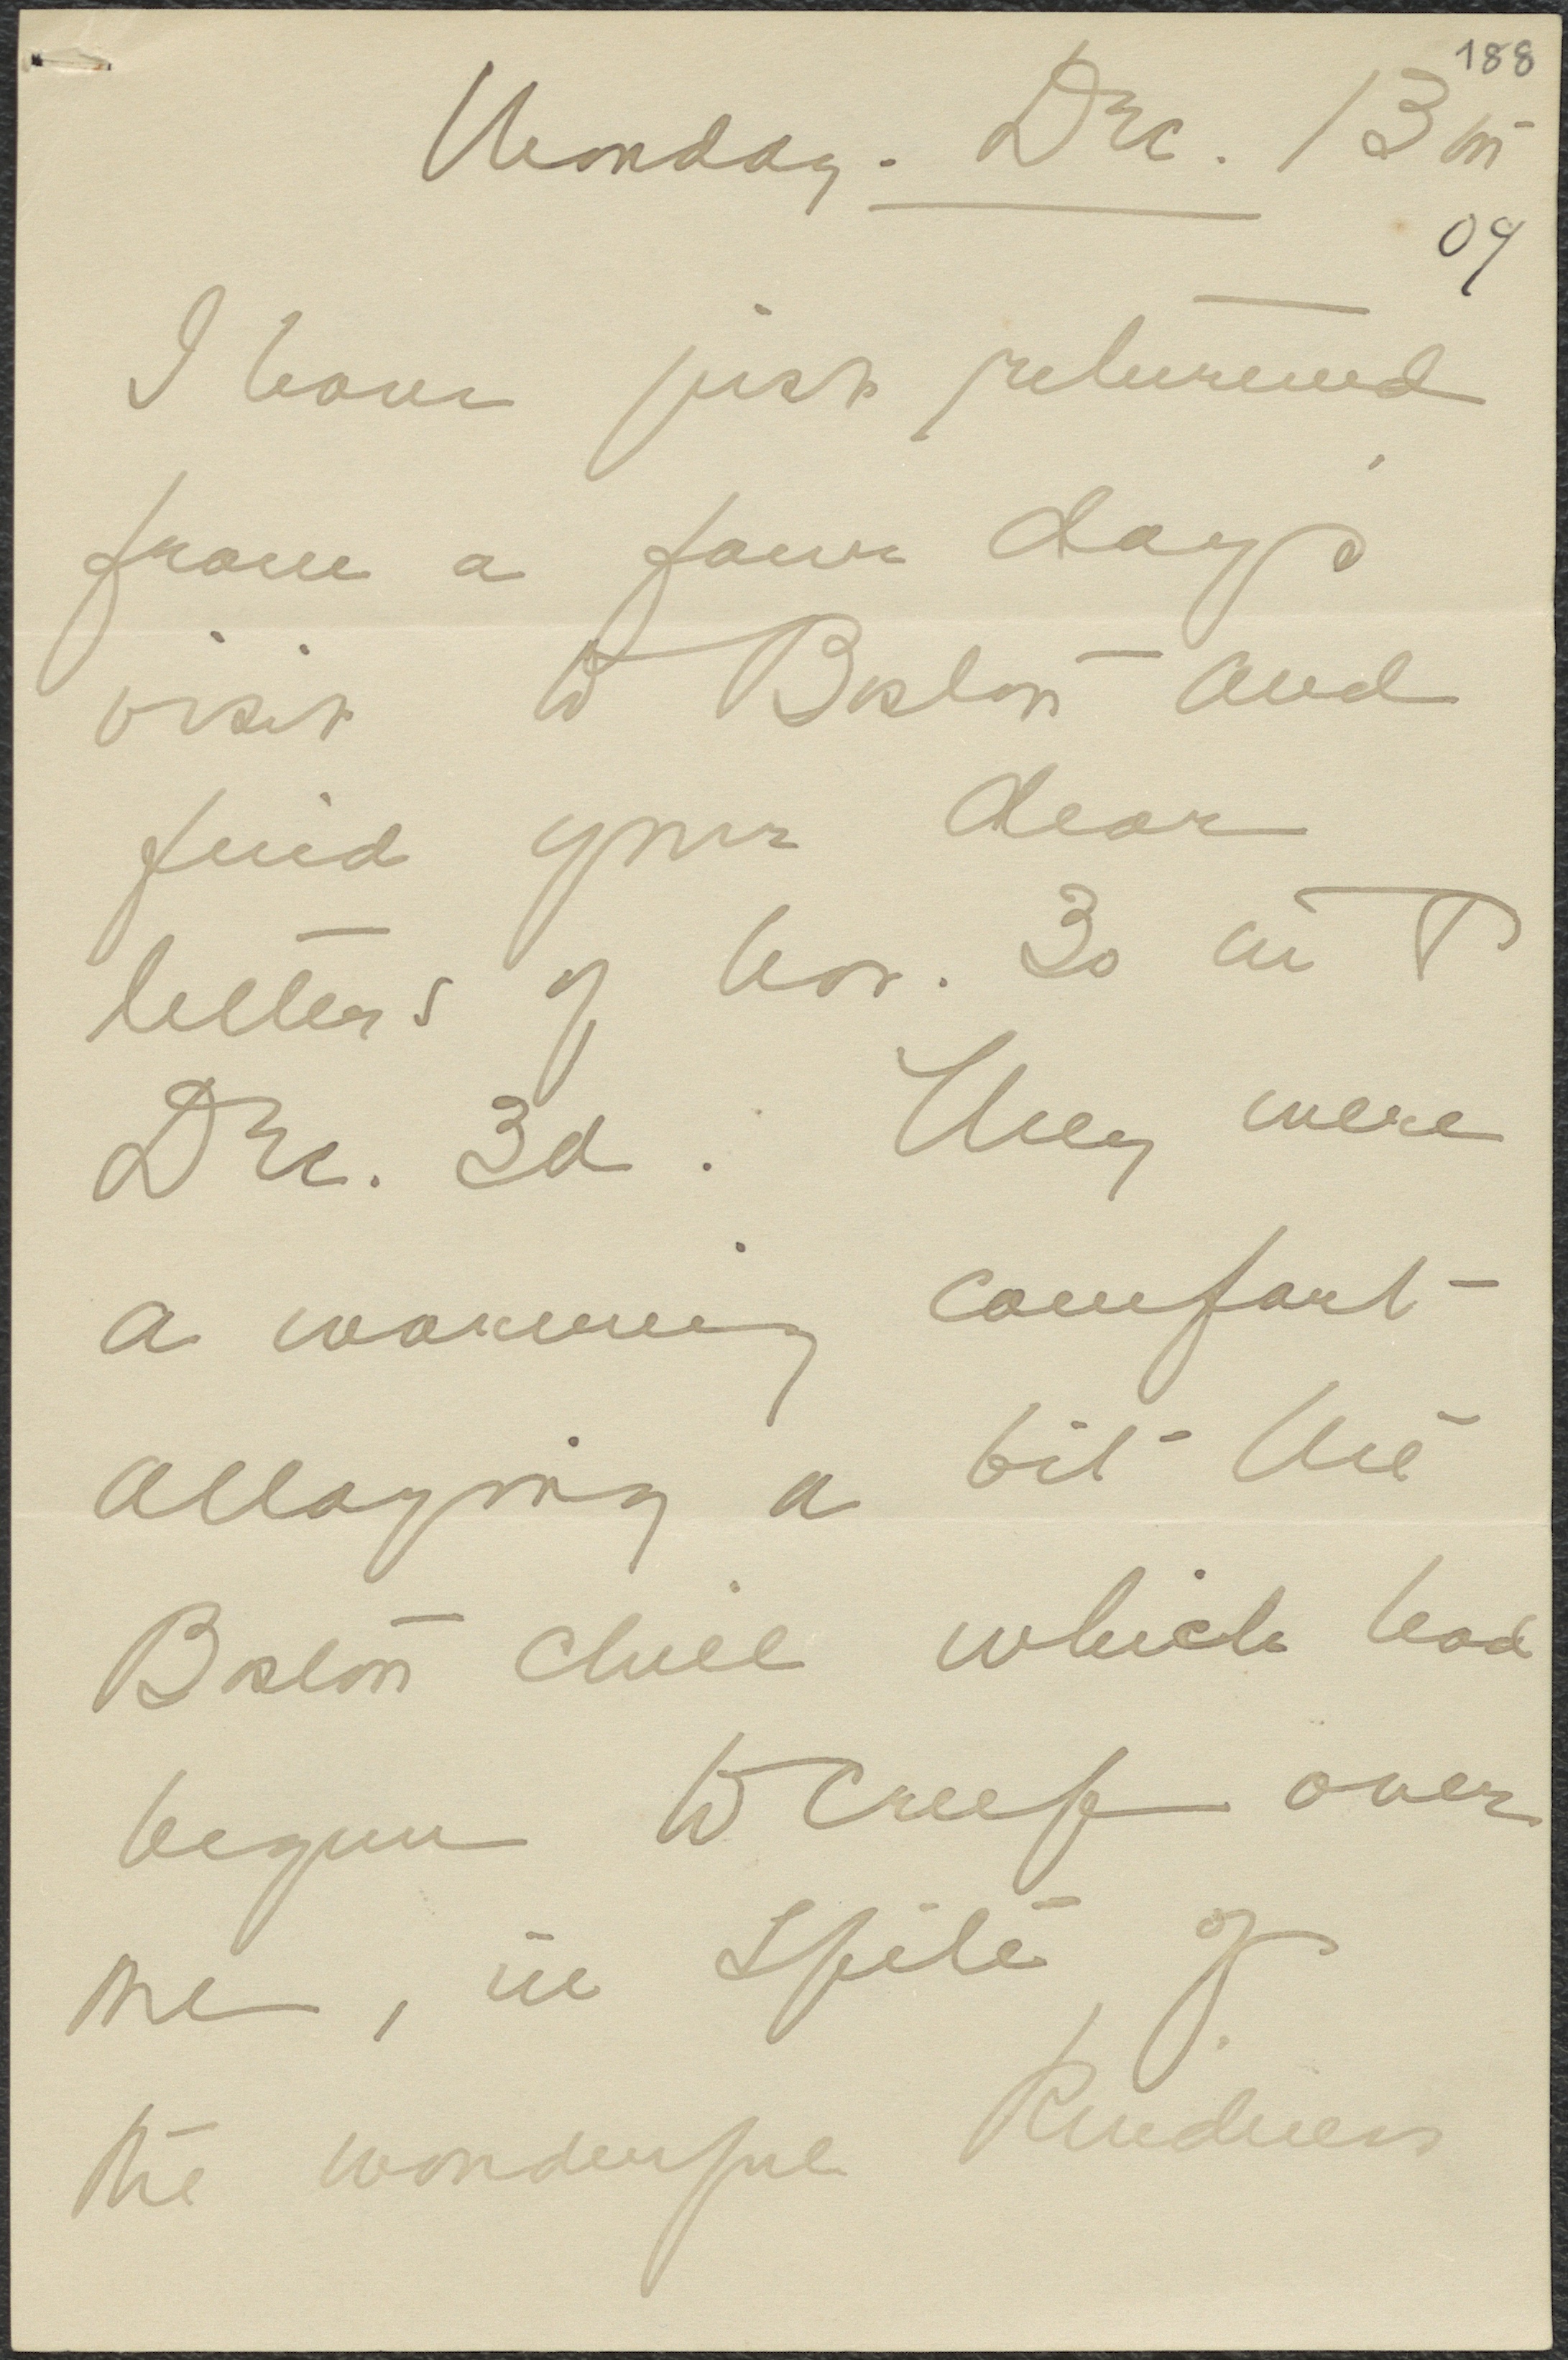 188
Monday. Dec. 13th
09
I have just returned
from a four days'
visit to Boston and
find your dear
letters of Nov. 30th &
Dec. 3d. They were
a warming comfort -
allaying a bit the
Boston chill which had
begun to creep over
me, in spite of
the wonderful kindness